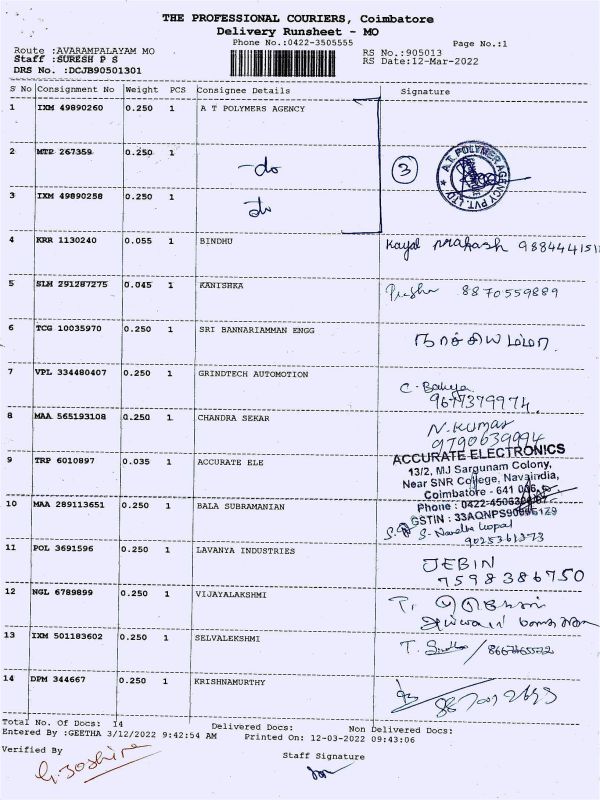 THE PROFESSIONAL COURIERS, Coimbatore
Delivery Runsheet - MO
Phone No.:0422-3505555
Page No.:1
Route :AVARAMPALAYAM MO
RS No.:905013
Staff :SURESH P S
RS Date:12-Mar-2022
DRS No. :DCJB90501301
S No Consignment No Weight PCS Consignee Details Signature
1 IXM 49890260 0.250 1 A T POLYMERS AGENCY
2 MTP 267359 0.250 1 -do
3 A.T. POLYMER AGENCY PVT. LTD
3 IXM 49890258 0.250 1 do
4 KRR 1130240 0.055 1 BINDHU Kayal Prakash
5 SLM 291287275 0.045 1 KANISHKA 8870559889
6 TCG 10035970 0.250 1 SRI BANNARIAMMAN ENGG
7 VPL 334480407 0.250 1 GRINDTECH AUTOMOTION C. 9677379974.
8 MAA 565193108 0.250 1 CHANDRA SEKAR N. Kumar
9790639994
9 TRP 6010897 0.035 1 ACCURATE ELE
ACCURATE ELECTRONICS
13/2, MJ Sargunam Colony,
Near SNR College, Navaindia,
Coimbatore - 641 006.
Phone : 0422-4506
GSTIN : 33AQNPS
10 MAA 289113651 0.250 1 BALA SUBRAMANIAN
S. Nandha Gopal
11 POL 3691596 0.250 1 LAVANYA INDUSTRIES JEBIN
7598386750
12 NGL 6789899 0.250 1 VIJAYALAKSHMI T.
13 IXM 501183602 0.250 1 SELVALEKSHMI T.
14 DPM 344667 0.250 1 KRISHNAMURTHY
Total No. Of Docs: 14 Delivered Docs: Non Delivered Docs:
Entered By :GEETHA 3/12/2022 9:42:54 AM Printed On: 12-03-2022 09:43:06
Verified By
Staff Signature